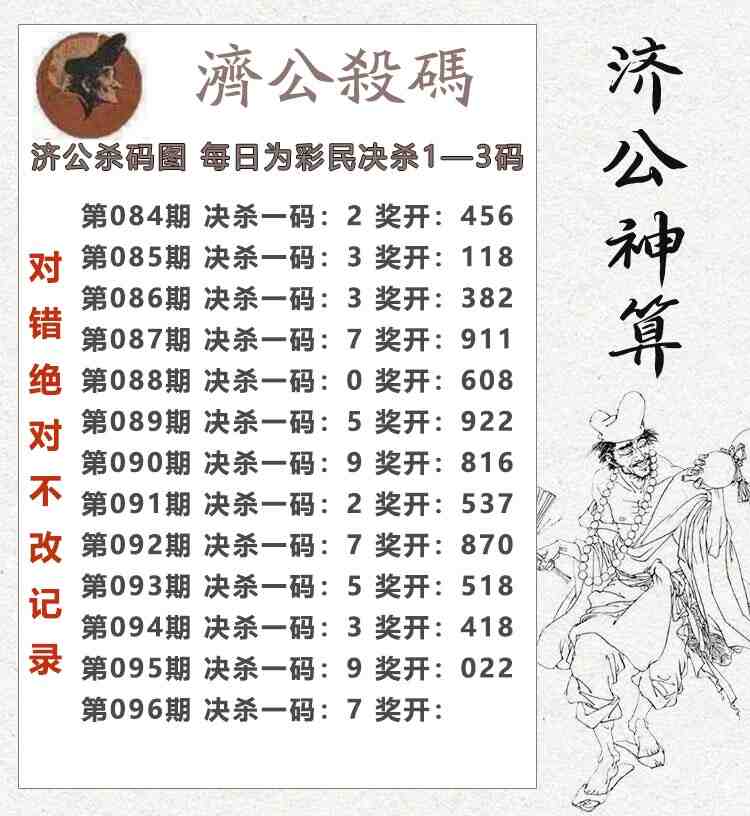 濟公殺碼
济公杀码图 每日为彩民决杀1—3码
第084期 决杀一码：2 奖开：456
第085期 决杀一码：3 奖开：118
第086期 决杀一码：3 奖开：382
第087期 决杀一码：7 奖开：911
第088期 决杀一码：0 奖开：608
第089期 决杀一码：5 奖开：922
第090期 决杀一码：9 奖开：816
第091期 决杀一码：2 奖开：537
第092期 决杀一码：7 奖开：870
第093期 决杀一码：5 奖开：518
第094期 决杀一码：3 奖开：418
第095期 决杀一码：9 奖开：022
第096期 决杀一码：7 奖开：
对错绝对不改记录
济公神算